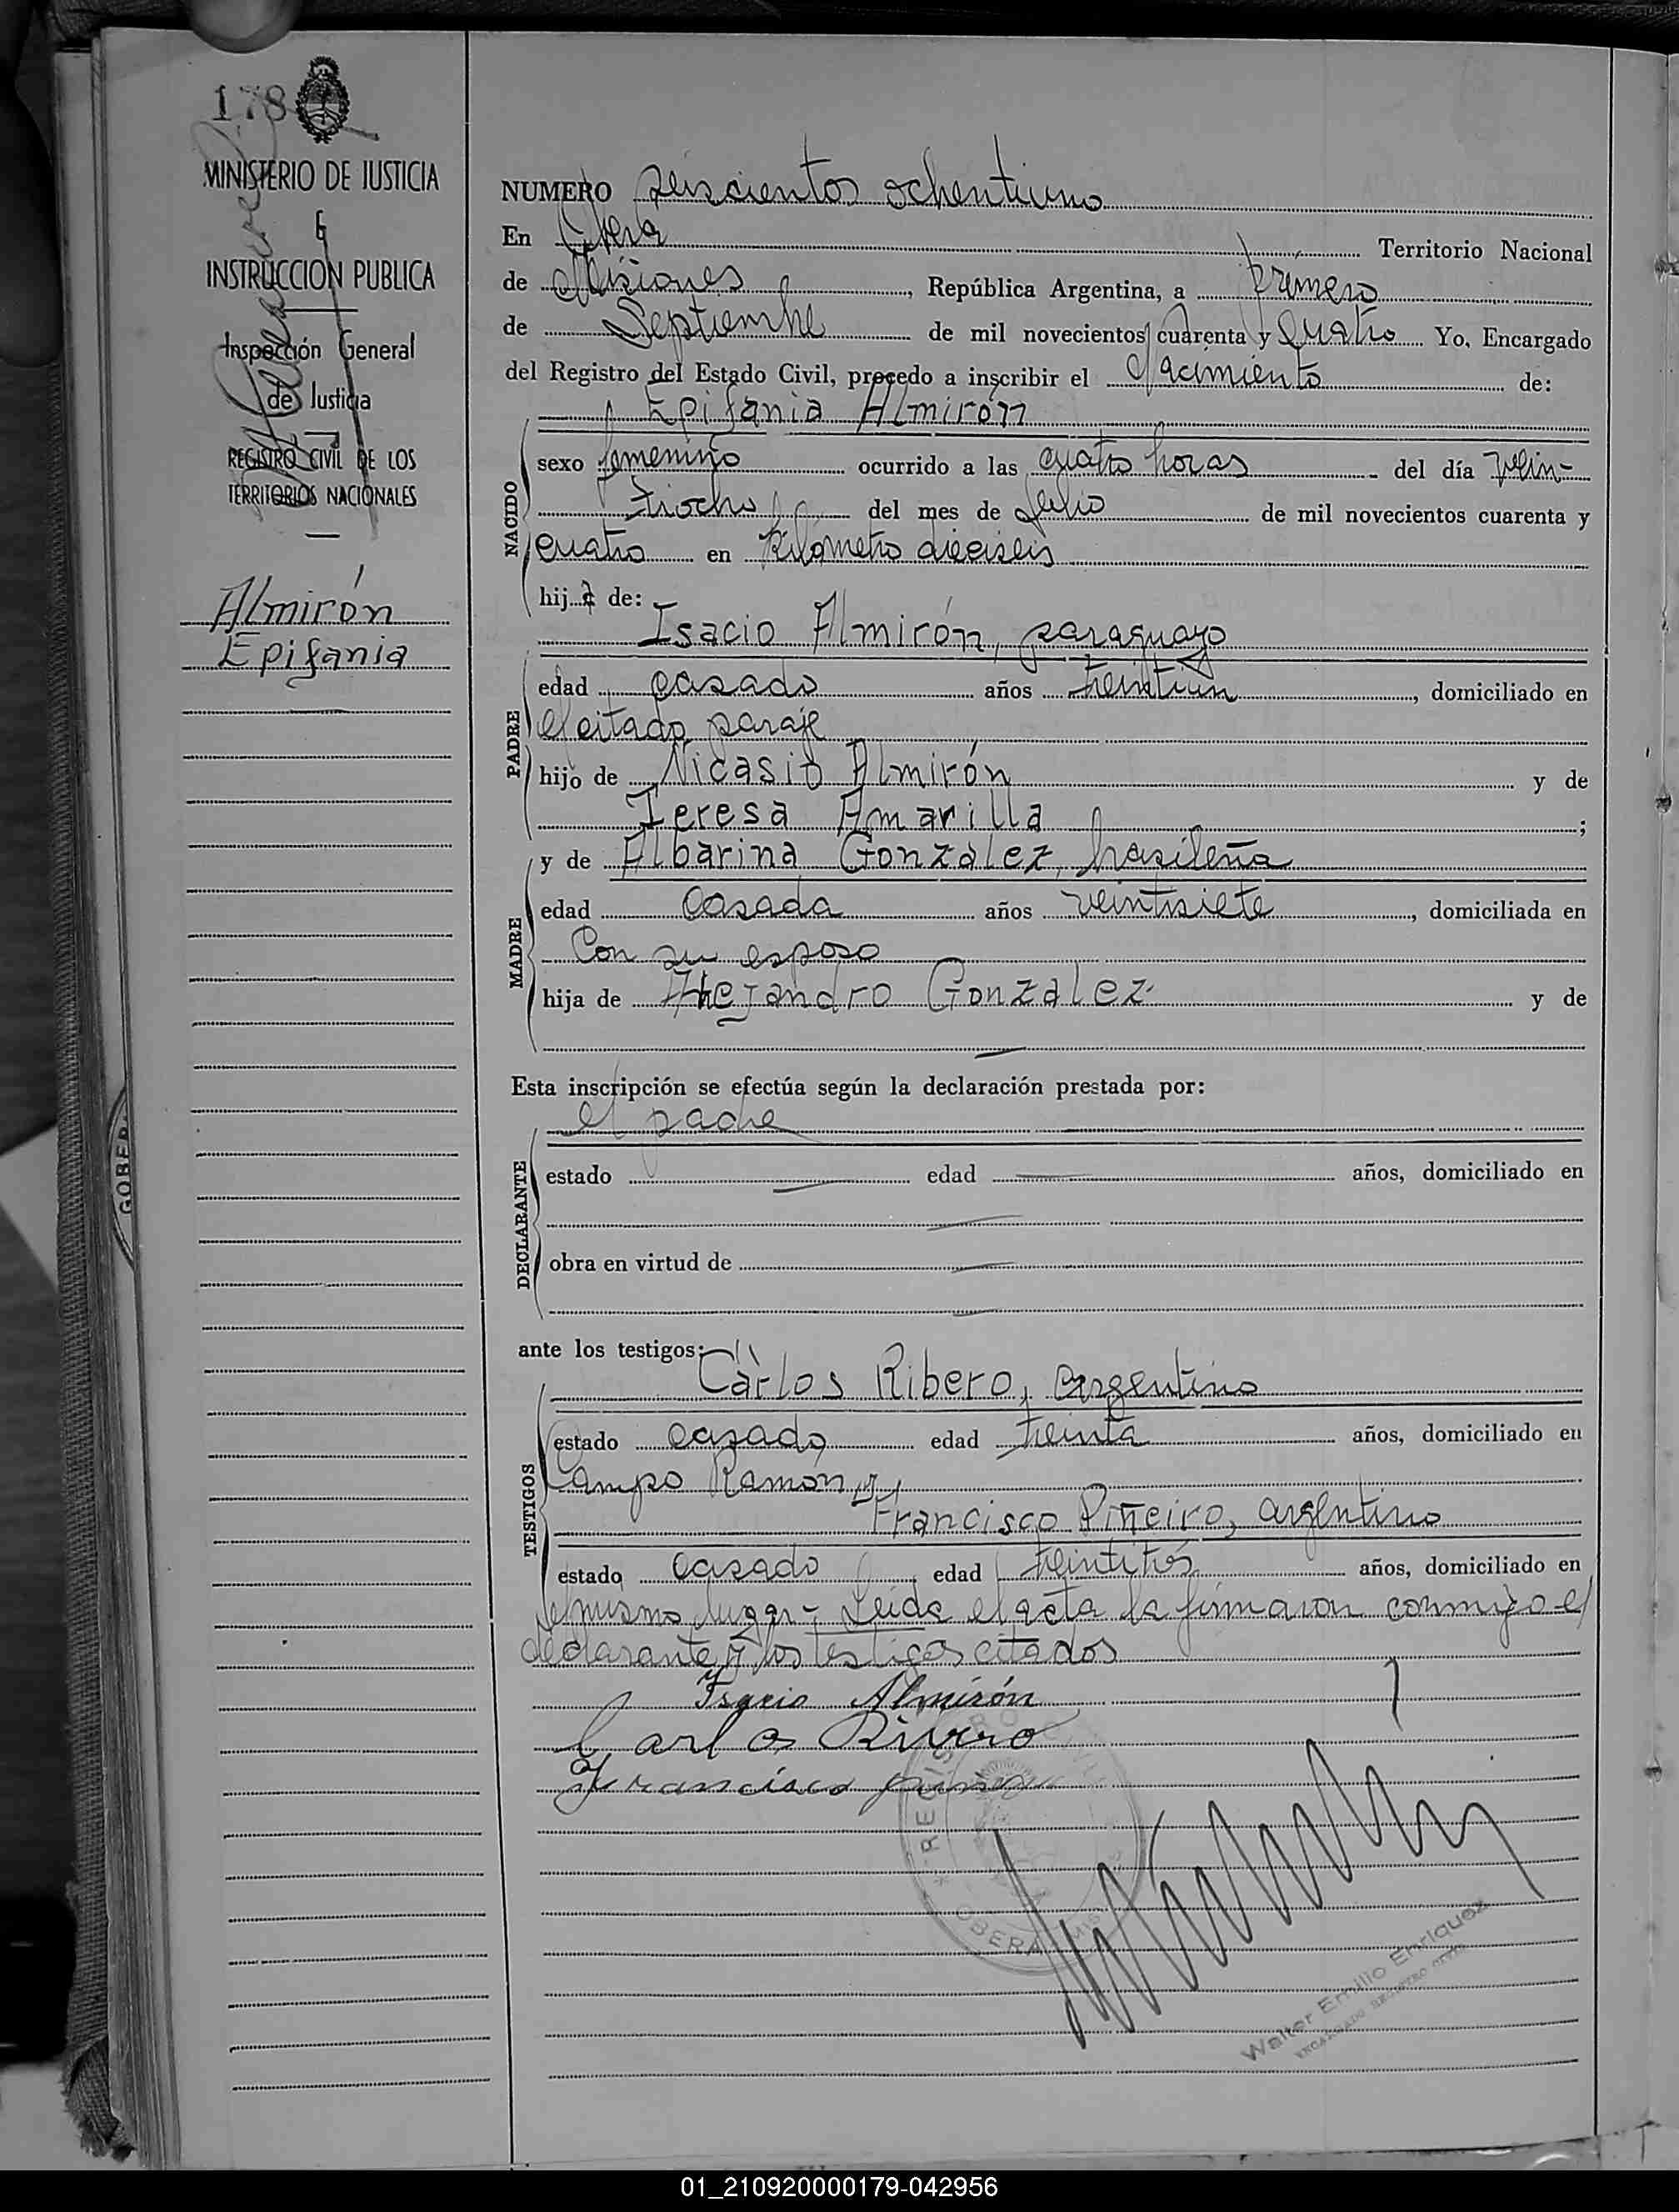 178
MINISTERIO DE JUSTICIA
E
INSTRUCCION PUBLICA
Inspección General
de Justicia
REGISTRO CIVIL DE LOS
TERRITORIOS NACIONALES
Almirón
Epifania
GOBER
NUMERO seiscientos ochentiuno
En Oberá Territorio Nacional
de Misiones, República Argentina, a primero
de Septiembre de mil novecientos cuarenta y cuatro Yo, Encargado
del Registro del Estado Civil, procedo a inscribir el Nacimiento de:
Epifania Almirón
NACIDO
sexo femenino ocurrido a las cuatro horas del día vein-
tiocho del mes de Julio de mil novecientos cuarenta y
cuatro en Kilómetro dieciseis
hija de:
Isacio Almirón, paraguayo
PADRE
edad casado años treintiun, domiciliado en
el citado paraje
hijo de Nicasio Almirón y de
Teresa Amarilla;
MADRE
y de Albarina González, brasileña
edad casada años veintisiete, domiciliada en
Con su esposo
hija de Alejandro González y de
Esta inscripción se efectúa según la declaración prestada por:
el padre
DECLARANTE
estado edad años, domiciliado en
obra en virtud de
ante los testigos:
Carlos Ribero, argentino
TESTIGOS
estado casado edad treinta años, domiciliado en
Campo Ramon, y
Francisco Piñeiro, argentino
estado casado edad treintitrés años, domiciliado en
el mismo lugar - Leida el acta la firmaron conmigo el
declarante y los testigos citados
Isacio Almirón
Carlos Rivero
Francisco
REGISTRO
OBERA MIS
Walter Emilio Enriquez
ENCARGADO REGISTRO CIVIL
01_210920000179-042956